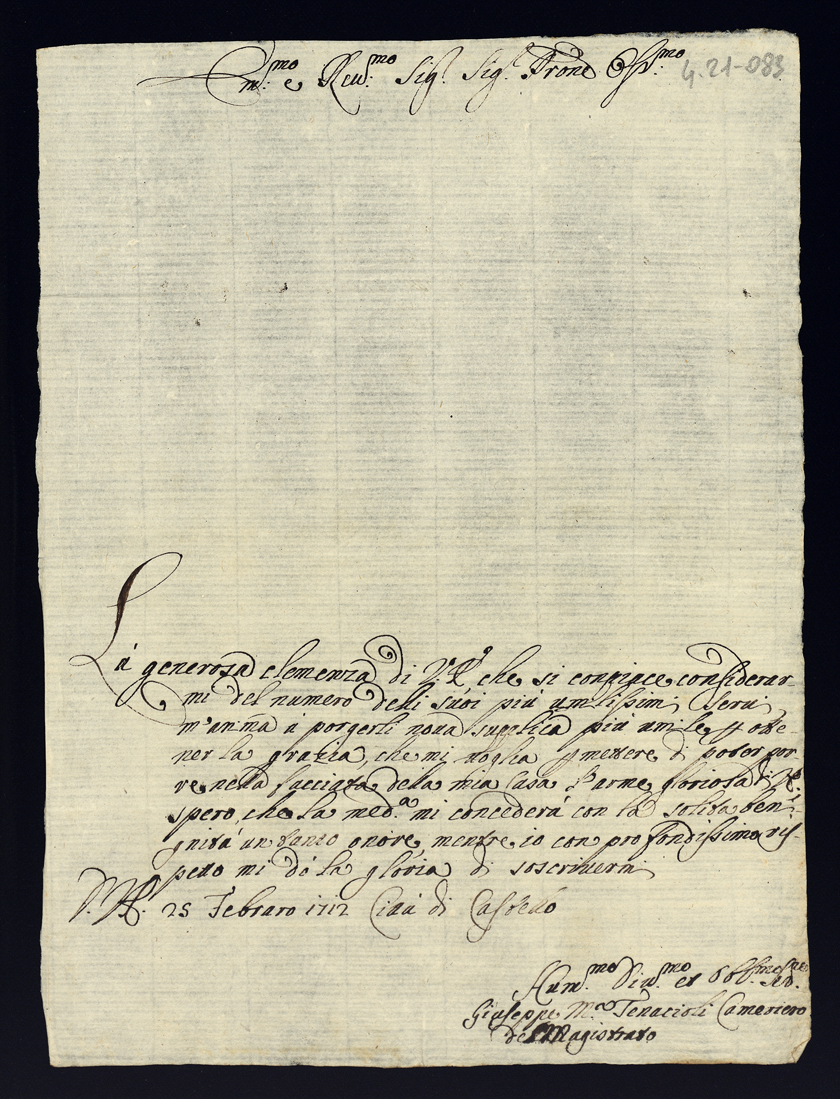 Em.mo e Reu.mo Sig.r Sig.r Prone Oss.mo
4.21-083
La generosa clemenza di V. Em.a che si compiace considerar
mi del numero delli suoi più umilissimi serui,
m'anima à porgerli noua suplica più umile p otte-
ner la grazia, che mi uoglia pmettere di poter por-
re nella facciata della mia Casa l'arme gloriosa di
spero, che la med.a mi concederà con la solita beni-
gnità un tanto onore, mentre io con profondissimo ris-
petto mi dò la gloria di soscriuermi
25 Febraro 1712 Città di Castello
Hum.mo Diu.mo et Obb.mo Se.re
Giuseppe M.a Tenacioli Cameriero
del Magistrato